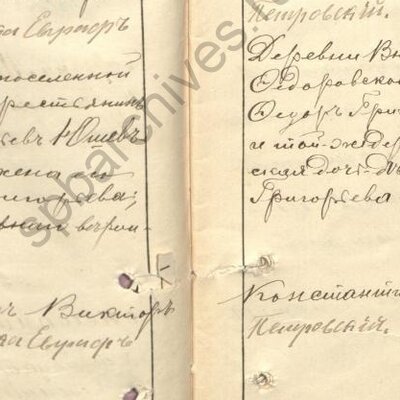 Евгморъ
поселенной
рестьянинъ
евъ Юшевъ
жена его
игорьева;
Викторъ
Евгморъ
Петровскій.
Деревни Вы
Ѳедоровско
Ѳедоръ Гри
и той-же дер
ская дочь-дѣ
Григорьева
Константи
Петровскій.
spbarchives.